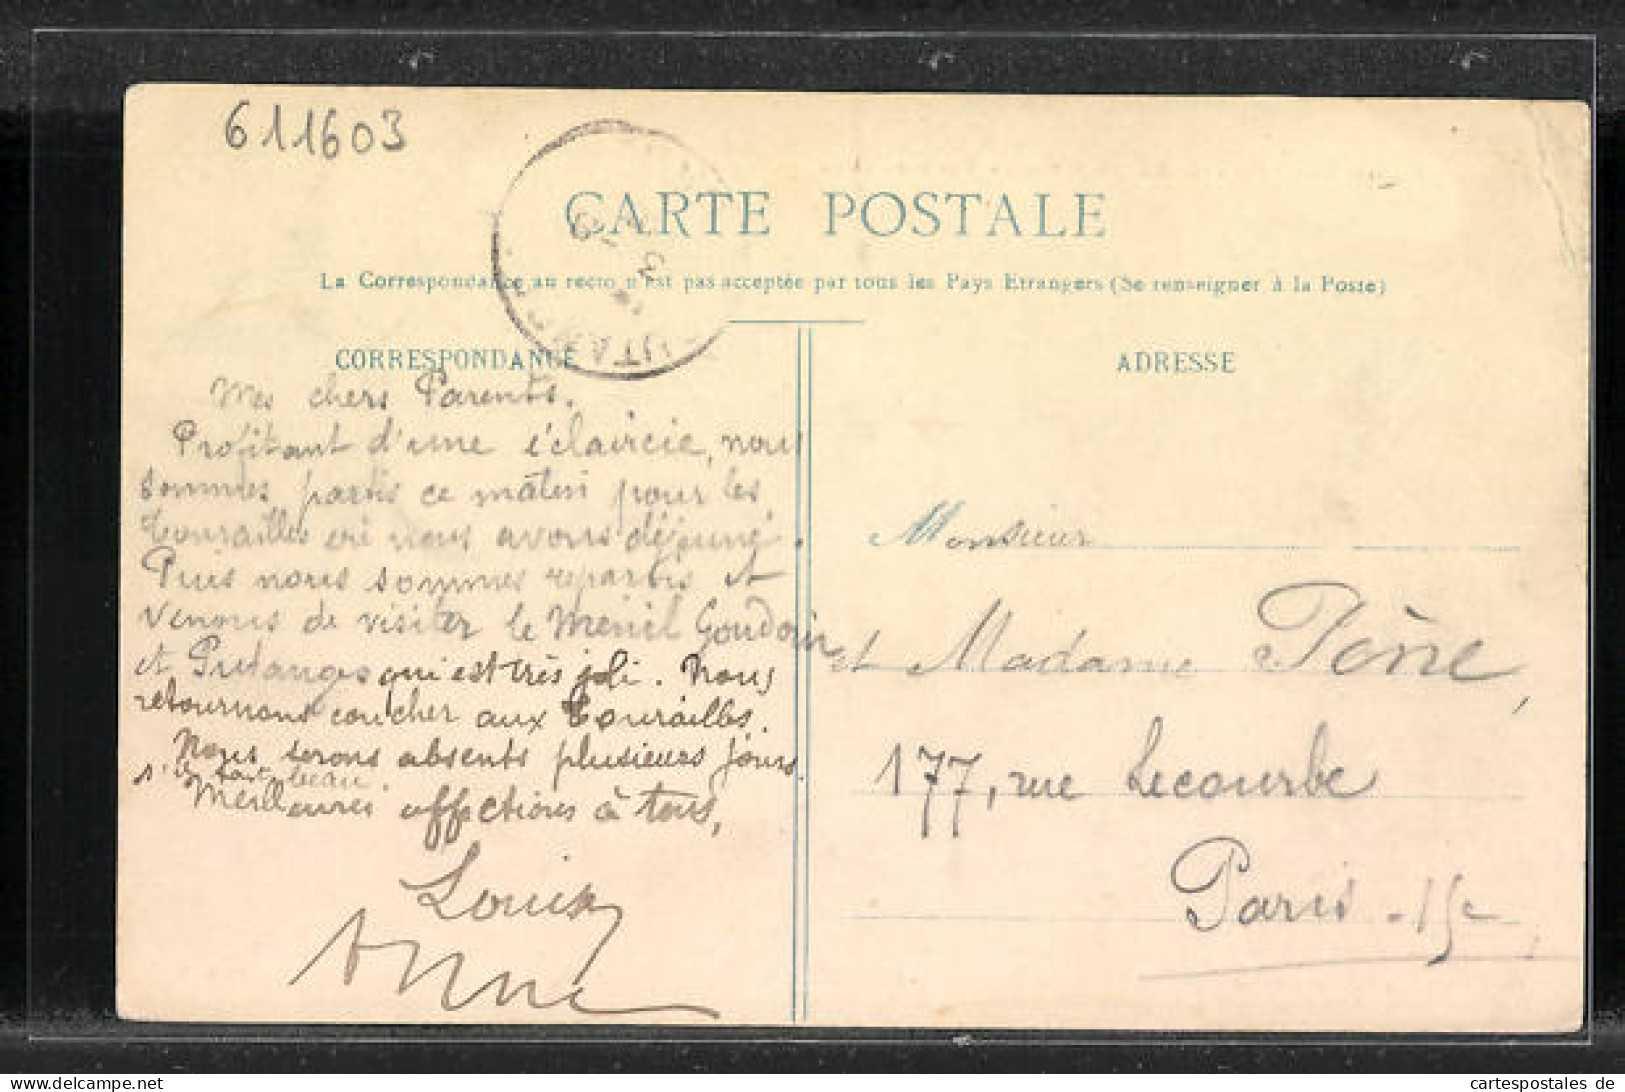 611603
CARTE POSTALE
La Correspondance au recto n'est pas acceptée par tous les Pays Etrangers (Se renseigner à la Poste)
CORRESPONDANCE
Mes chers Parents.
Profitant d'une éclaircie, nous
sommes partis ce matin pour les
Tourailles où nous avons déjeuné.
Puis nous sommes repartis et
venons de visiter le Ménil Goudoin
et Putanges qui est très joli. Nous
retournons coucher aux Tourailles.
Nous serons absents plusieurs jours
s'il fait beau
Meilleures affections à tous,
Louis
Anne
ADRESSE
Monsieur
et Madame
177, rue Lecourbe
Paris - 15e
cartespostales de